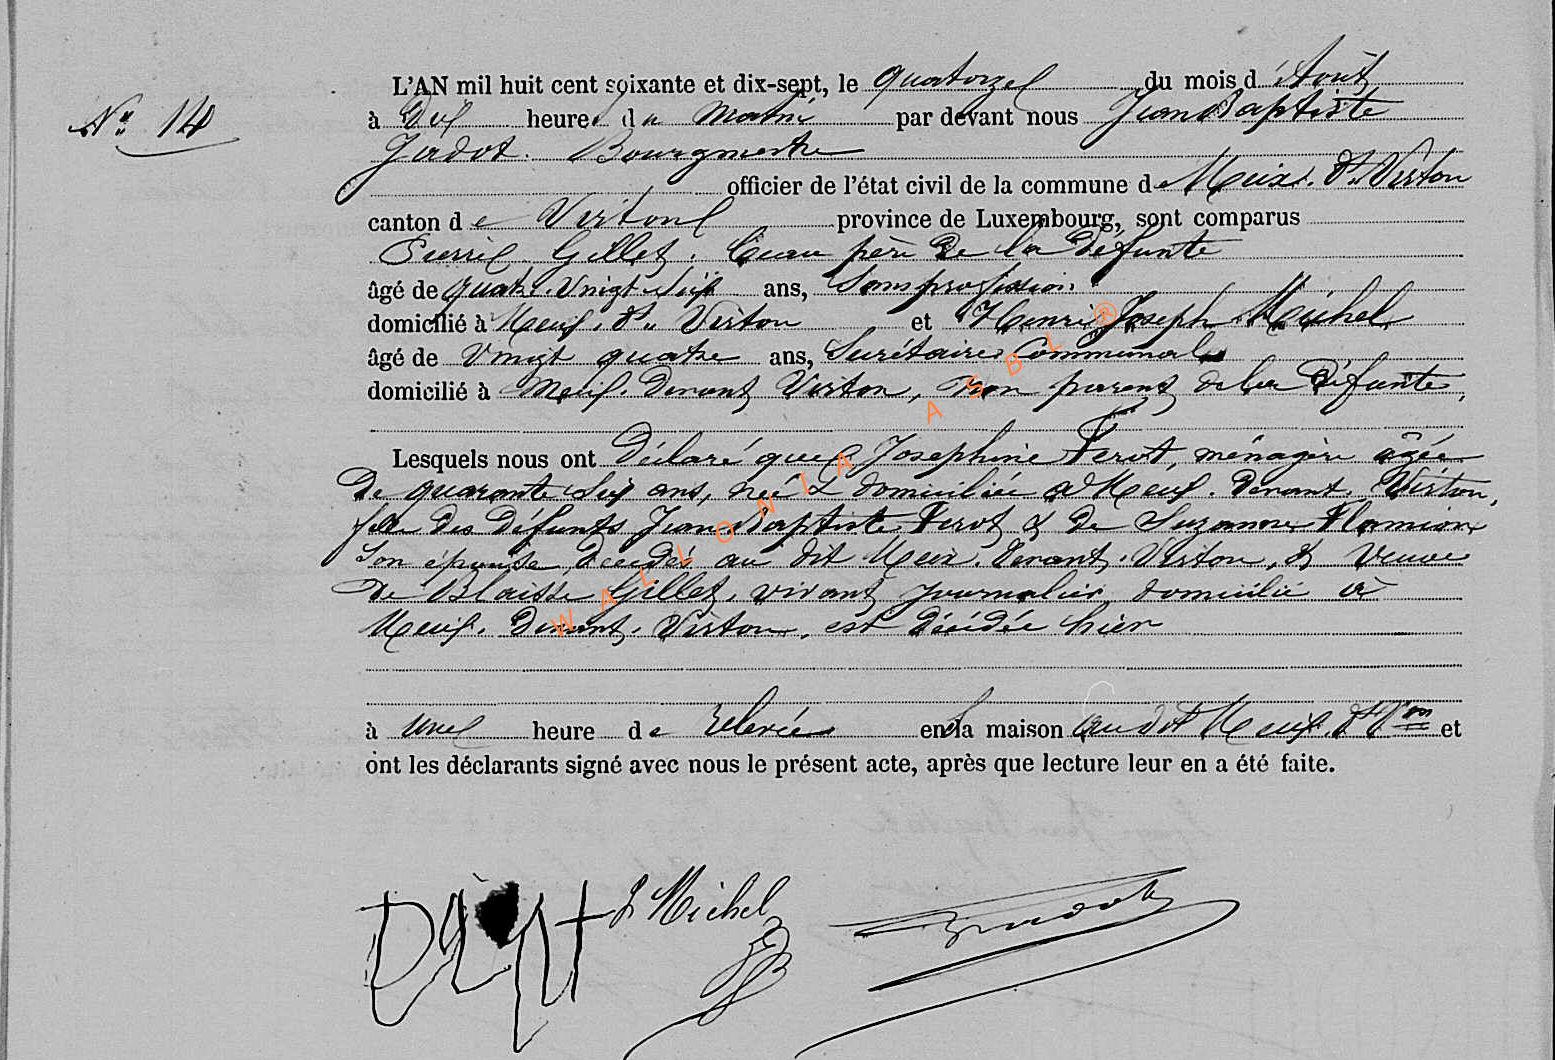 N° 14
L'AN mil huit cent soixante et dix-sept, le quatorze du mois d'Août
à Dix heures du matin par devant nous Jean Baptiste
Jadot. Bourgmestre
officier de l'état civil de la commune de Meix. Dt Virton
canton de Virton province de Luxembourg, sont comparus
Pierre Gillet. beau père de la défunte
âgé de quatre. Vingt ans, Sans profession.
domicilié à Meix. Dt Virton et Henri Joseph Michel
âgé de Vingt quatre ans, Secrétaire Communal
domicilié à Meix. Devant Virton, non parent de la défunte,
Lesquels nous ont déclaré que Josephine Ferot, ménagère âgée
De quarante six ans, née & domiciliée à Meix. Devant. Virton,
fille des défunts Jean Baptiste Ferot & de Suzanne Flamion
Son épouse décédés au dit Meix. Devant. Virton, & veuve
de Blaisse Gillet, vivant journalier domicilié à
Meix. Devant. Virton, est décédée hier
à une heure de relevée en la maison au dit Meix. Dt Von et
ont les déclarants signé avec nous le présent acte, après que lecture leur en a été faite.
h Michel Jadot
WALLONIA ASBL ®